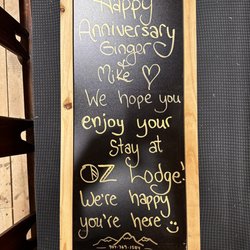 Happy
Anniversary
Ginger
&
Mike ♡
We hope you
enjoy your
Stay at
OZ Lodge!
We're happy
you're here